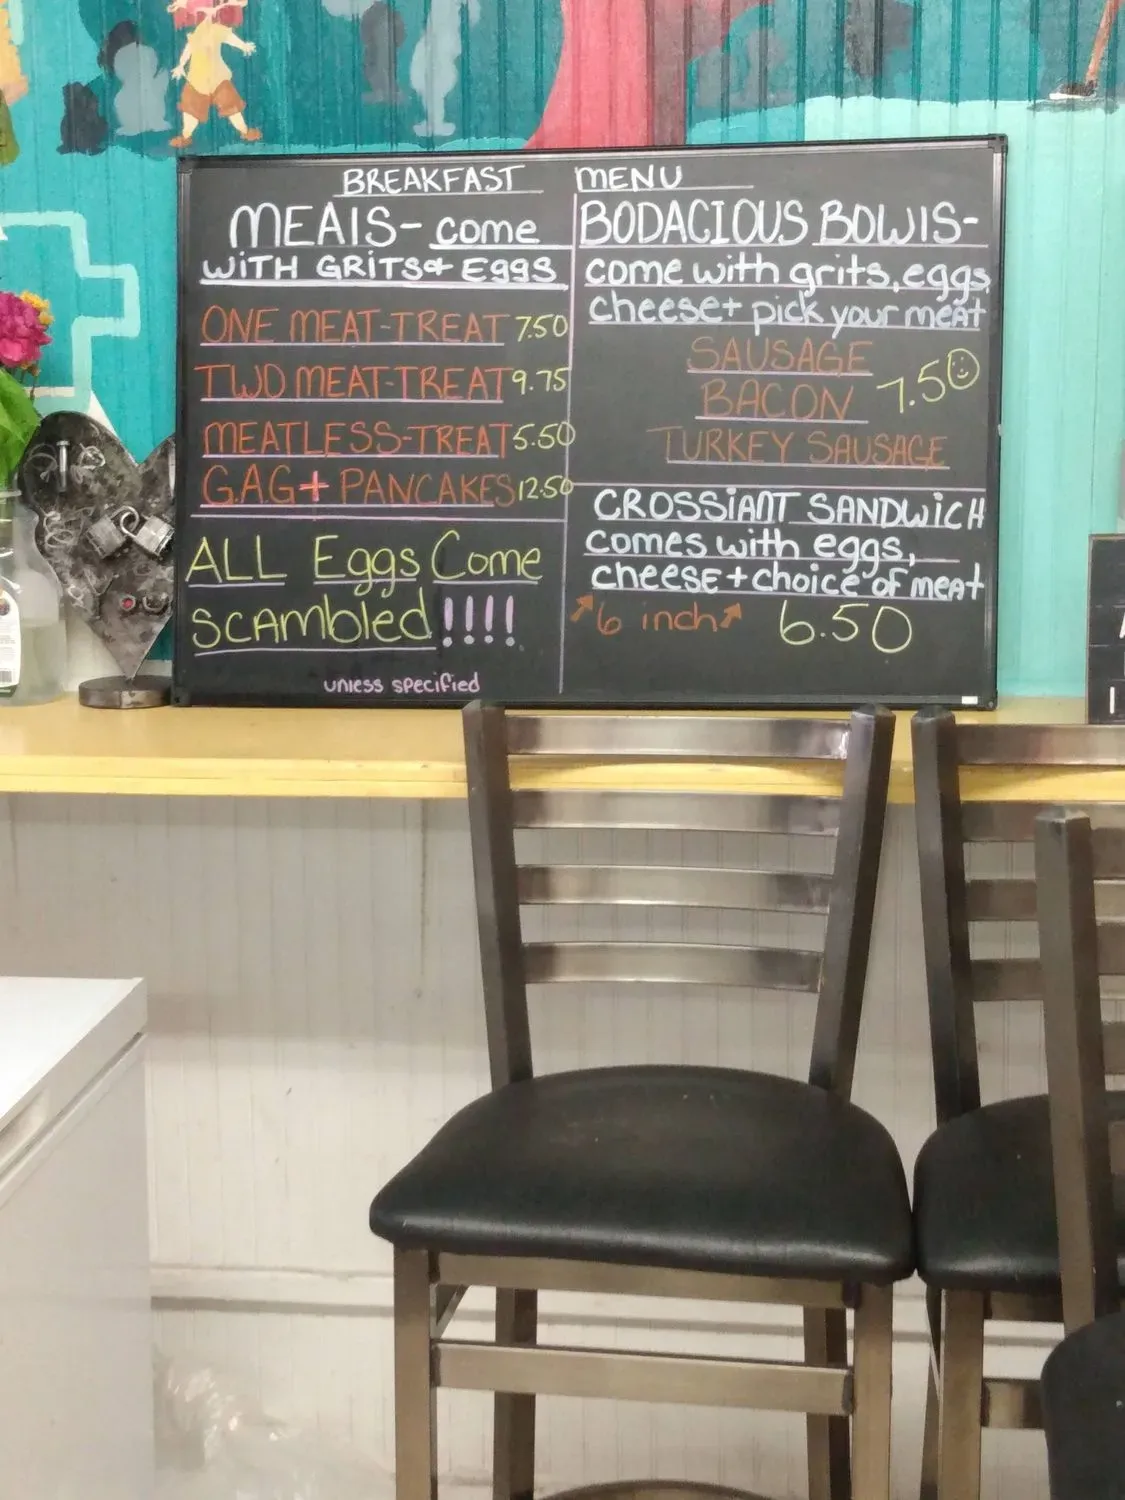 BREAKFAST MENU
MEAlS- come
WiTH GRITS+ EGGS
ONE MEAT-TREAT 7.50
TWO MEAT-TREAT 9.75
MEATLESS-TREAT 5.50
G.A.G + PANCAKES 12.50
ALL Eggs Come
SCAMbled!!!!
unless specified
BODACIOUS BOWlS-
come with grits, eggs
cheese+ pick your meat
SAUSAGE
BACON 7.50
TURKEY SAUSAGE
CROSSiANT SANDWiCH
comes with eggs,
cheese + choice of meat
6 inch 6.50